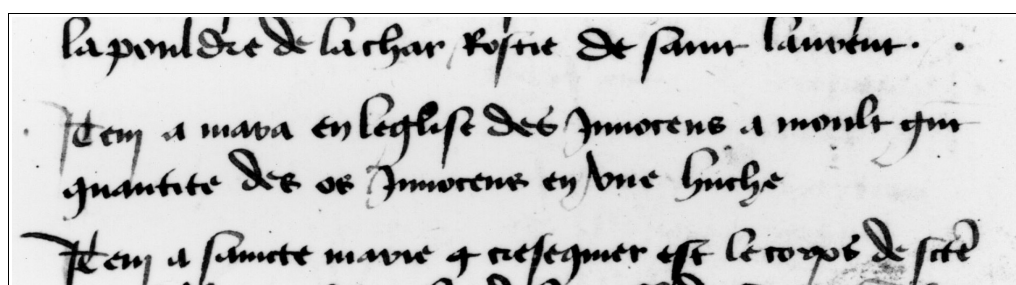 la pouldre de la char Rostie de saint laurent .
Item a mara en leglise des Innocens a moult gnt
quantite des os Innocens en vne huche
Item a saincte marie q cresequier est le corps de scte